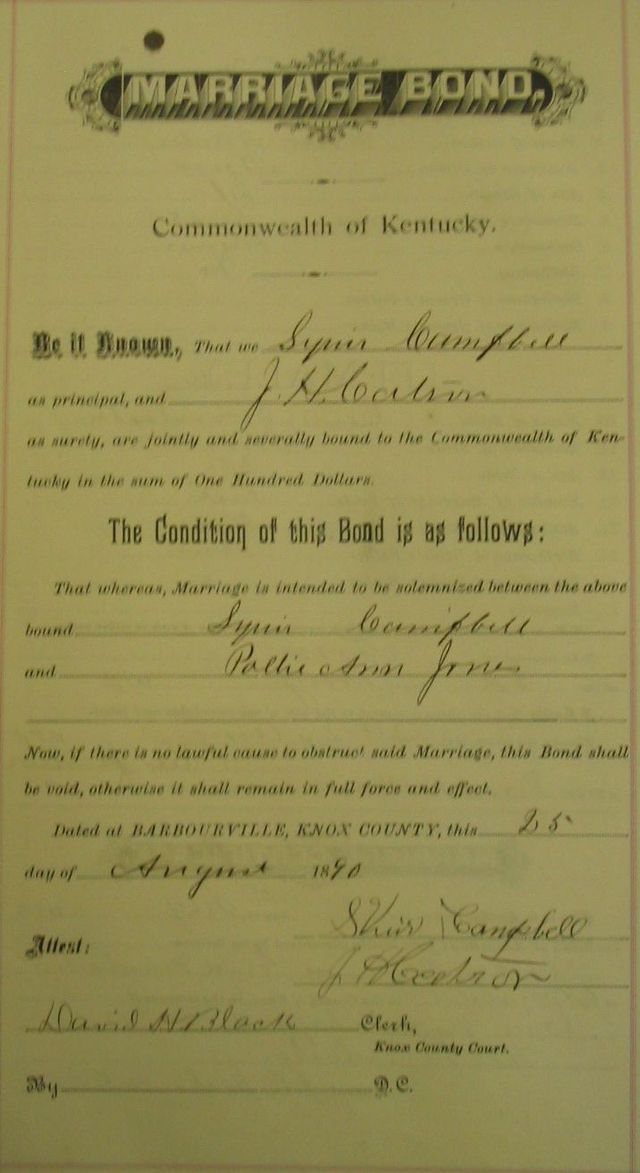 MARRIAGE BOND.
Commonwealth of Kentucky.
Be it Known, That we Campbell
as principal, and J. H. Catron
as surety, are jointly and severally bound to the Commonwealth of Ken-
tucky in the sum of One Hundred Dollars.
The Condition of this Bond is as follows:
That whereas, Marriage is intended to be solemnized between the above
bound Campbell
and Pollie Ann Jones
Now, if there is no lawful cause to obstruct said Marriage, this Bond shall
be void, otherwise it shall remain in full force and effect.
Dated at BARBOURVILLE, KNOX COUNTY, this 25
day of August 1890
Campbell
Attest:
J H Catron
David H Black Clerk,
Knox County Court.
By D.C.